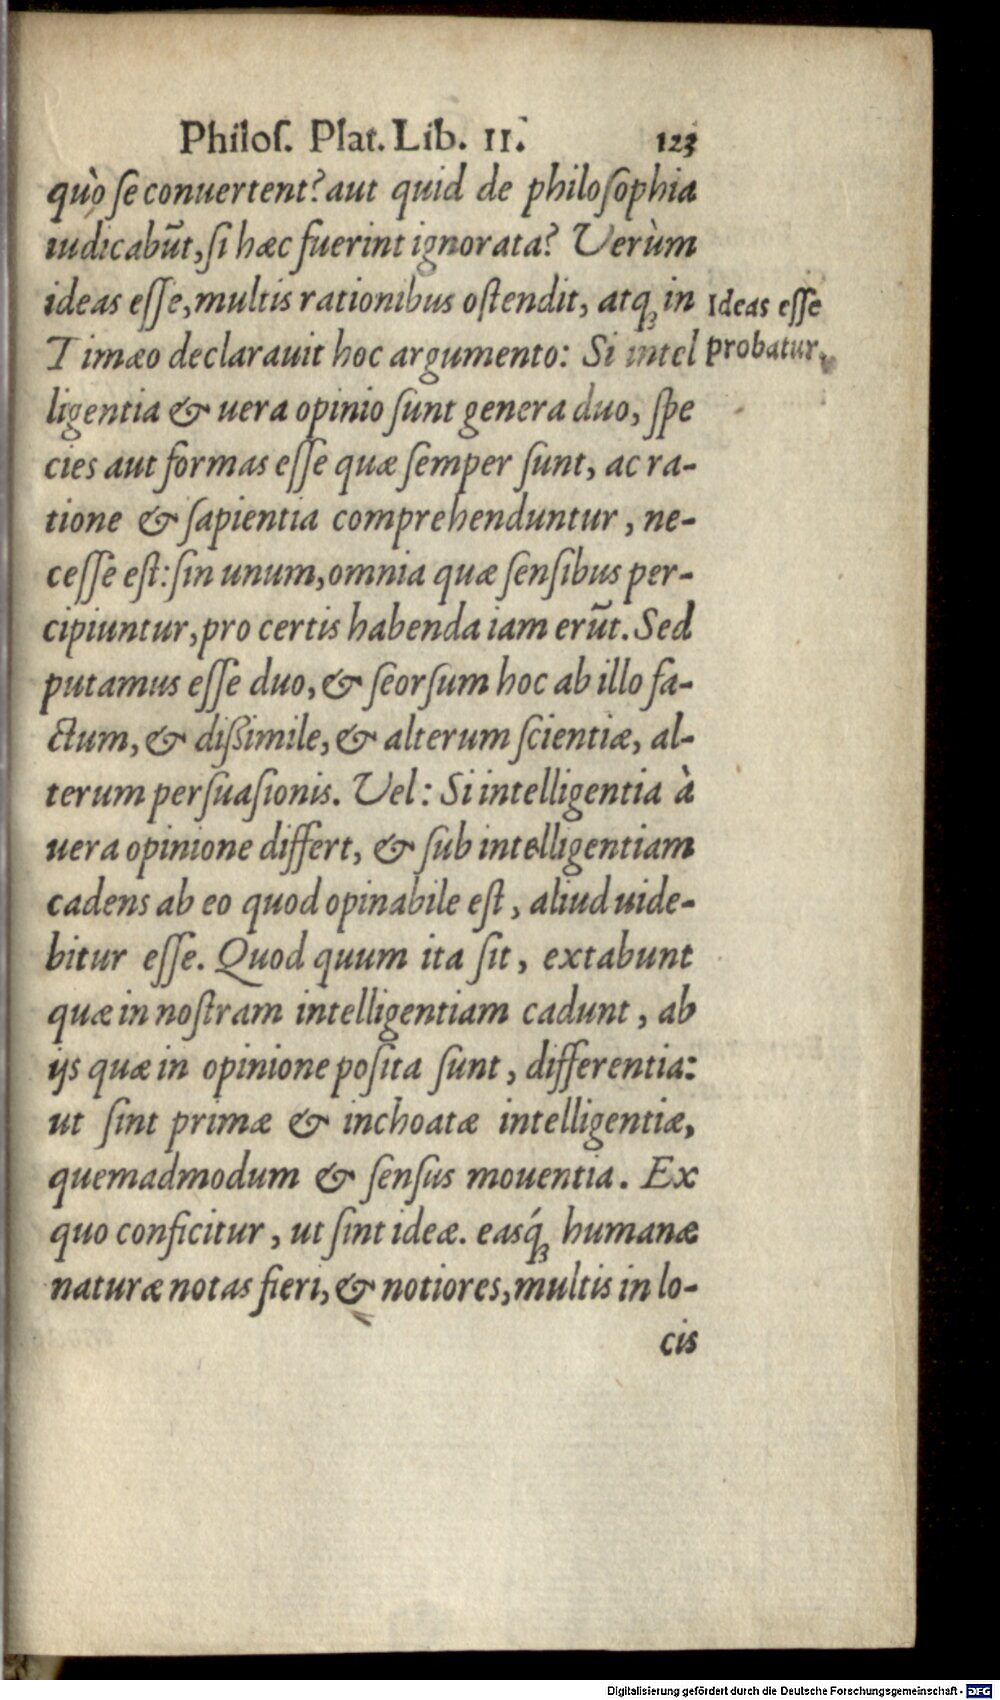 Philoſ. Plat. Lib. II. 123
quò ſe conuertent? aut quid de philoſophia
iudicabũt, ſi hæc fuerint ignorata? Verùm
ideas eſſe, multis rationibus oſtendit, atq́; in
Timæo declarauit hoc argumento: Si intel
ligentia & uera opinio ſunt genera duo, ſpe
cies aut formas eſſe quæ ſemper ſunt, ac ra-
tione & ſapientia comprehenduntur, ne-
ceſſe eſt: ſin unum, omnia quæ ſenſibus per-
cipiuntur, pro certis habenda iam erũt. Sed
putamus eſſe duo, & ſeorſum hoc ab illo fa-
ctum, & diſsimile, & alterum ſcientiæ, al-
terum perſuaſionis. Vel: Si intelligentia à
uera opinione differt, & ſub intelligentiam
cadens ab eo quod opinabile eſt, aliud uide-
bitur eſſe. Quod quum ita ſit, extabunt
quæ in noſtram intelligentiam cadunt, ab
ijs quæ in opinione poſita ſunt, differentia:
ut ſint primæ & inchoatæ intelligentiæ,
quemadmodum & ſenſus mouentia. Ex
quo conficitur, ut ſint ideæ. easq́; humanæ
naturæ notas fieri, & notiores, multis in lo-
cis
Ideas eſſe
probatur.
Digitalisierung gefördert durch die Deutsche Forschungsgemeinschaft - DFG